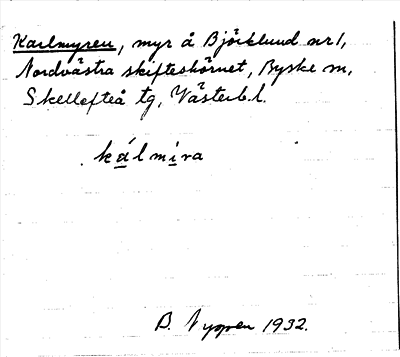 Karlmyren, myr å Björklund nr 1,
Nordvästra skifteshörnet, Byske sn,
Skellefteå tg, Västerb. l.
kálmíra
B. Nygren 1932.